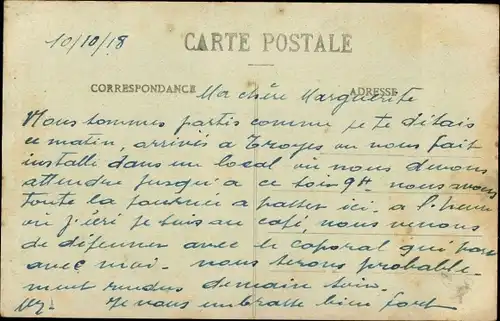 10/10/18
CARTE POSTALE
CORRESPONDANCE
ADRESSE
Ma chère Marguerite
Nous sommes partis comme je te disais
ce matin, arrivés à Troyes on nous fait
installé dans un local où nous devons
attendre jusqu'a ce soir 9H. nous avons
toute la journée a passer ici. a l'heure
où j'écri je suis au café, nous venons
de déjeuner avec le caporal qui part
avec moi. nous serons probable-
ment rendus demain soir.
Je vous embrasse bien fort